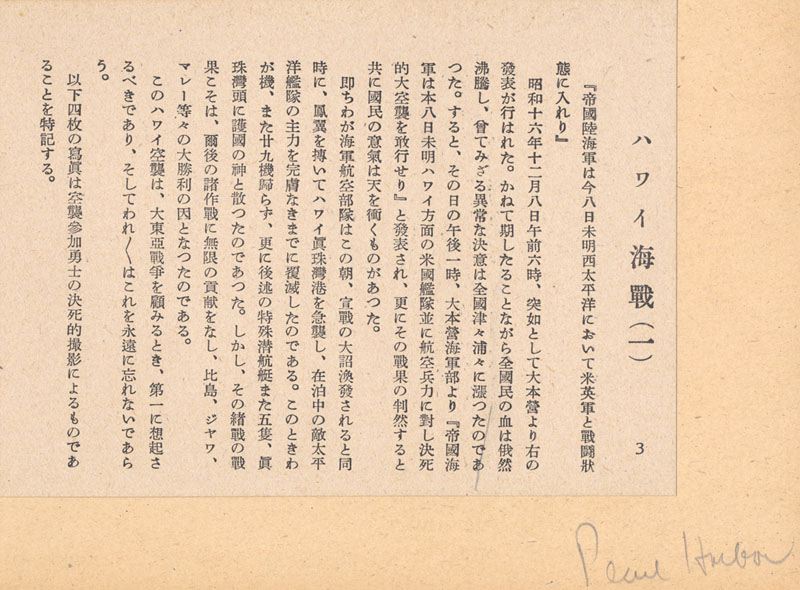 ハワイ海戰(一)
3
『帝國陸海軍は今八日未明西太平洋において米英軍と戰鬪狀
態に入れり』
昭和十六年十二月八日午前六時、突如として大本營より右の
發表が行はれた。かねて期したることながら全國民の血は俄然
沸騰し、曾てみざる異常な決意は全國津々浦々に漲つたのであ
つた。すると、その日の午後一時、大本營海軍部より『帝國海
軍は本八日未明ハワイ方面の米國艦隊並に航空兵力に對し決死
的大空襲を敢行せり』と發表され、更にその戰果の判然すると
共に國民の意氣は天を衝くものがあつた。
卽ちわが海軍航空部隊はこの朝、宣戰の大詔渙發されると同
時に、鳳翼を搏いてハワイ眞珠灣港を急襲し、在泊中の敵太平
洋艦隊の主力を完膚なきまでに覆滅したのである。このときわ
が機、また廿九機歸らず、更に後述の特殊潜航艇また五隻、眞
珠灣頭に護國の神と散つたのであつた。しかし、その緖戰の戰
果こそは、爾後の諸作戰に無限の貢献をなし、比島、ジヤワ、
マレー等々の大勝利の因となつたのである。
このハワイ空襲は、大東亞戰爭を顧みるとき、第一に想起さ
るべきであり、そしてわれ〳〵はこれを永遠に忘れないであら
う。
以下四枚の寫眞は空襲參加勇士の決死的撮影によるものであ
ることを特記する。
Pearl Harbor